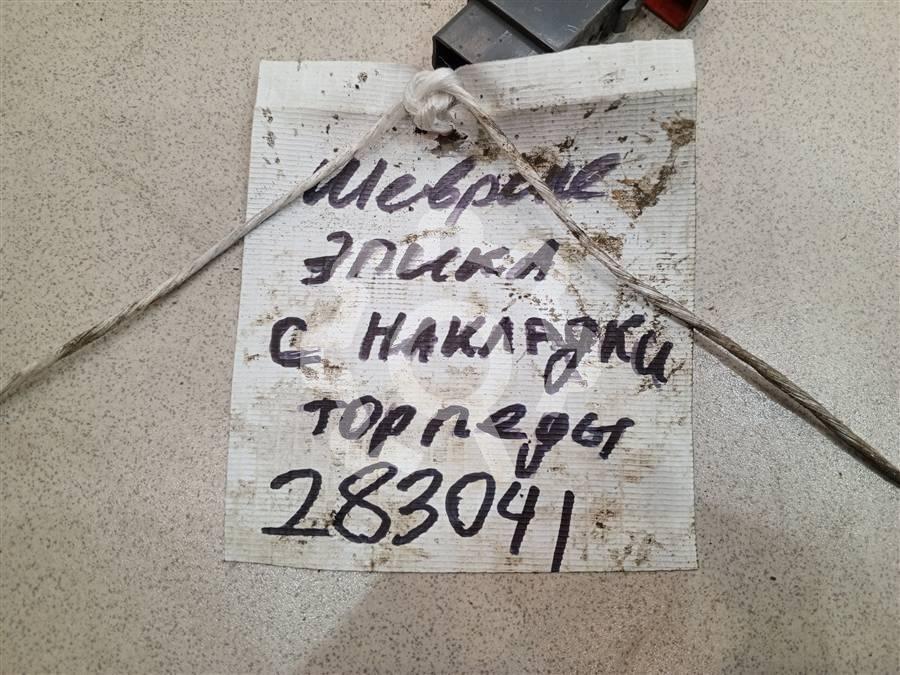 Шевроле
Эпика
С НАКЛАДКИ
торпеды
283041